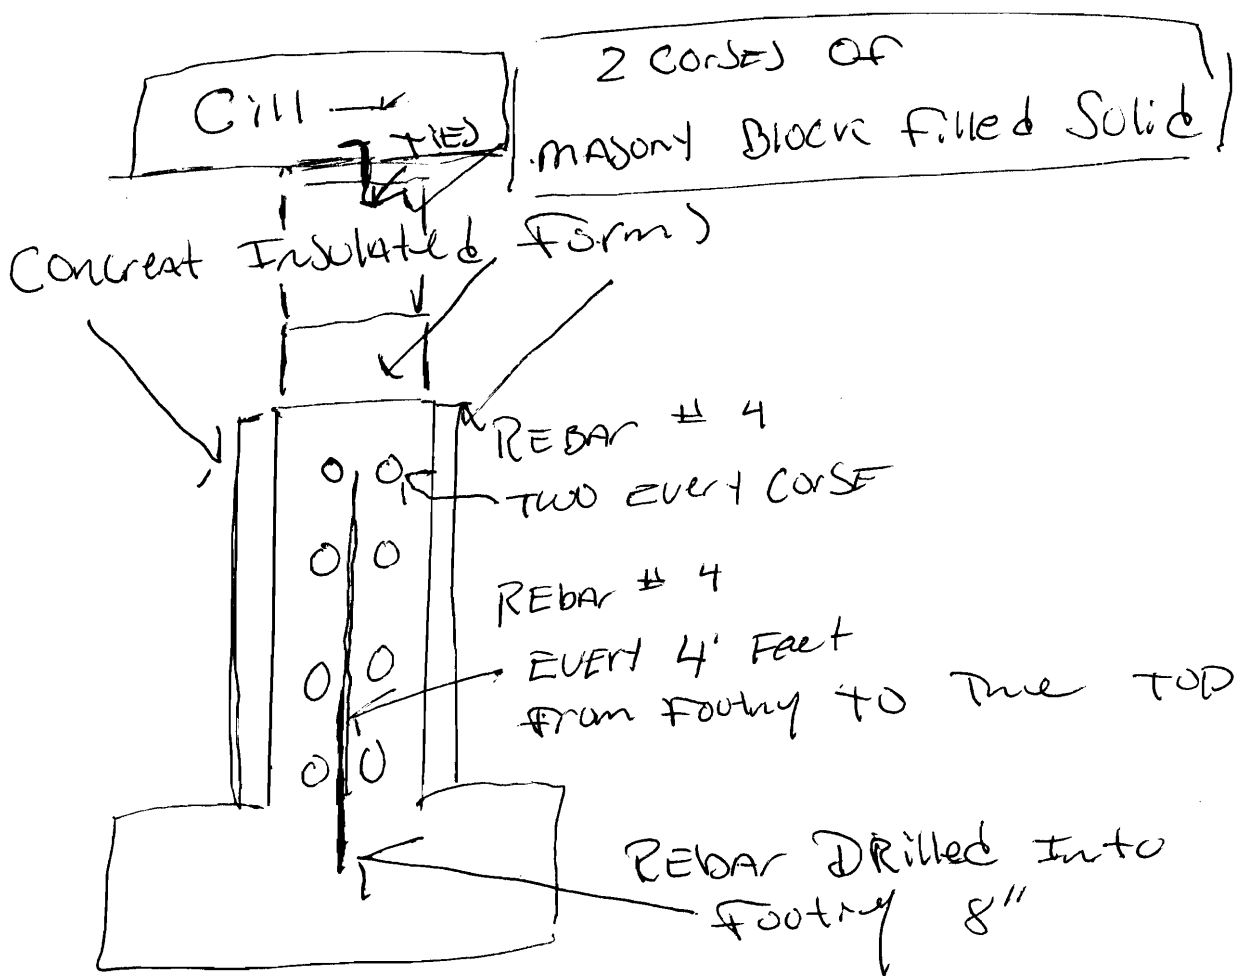 2 Corses OF
MASONY Block Filled Solid
Cill
TIES
Concreat Insulated Forms
REBAR # 4
TWO EVERY CORSE
REBAR # 4
EVERY 4' Feet
From Footing TO The TOP
REBAR DRilled InTo
Footing 8"